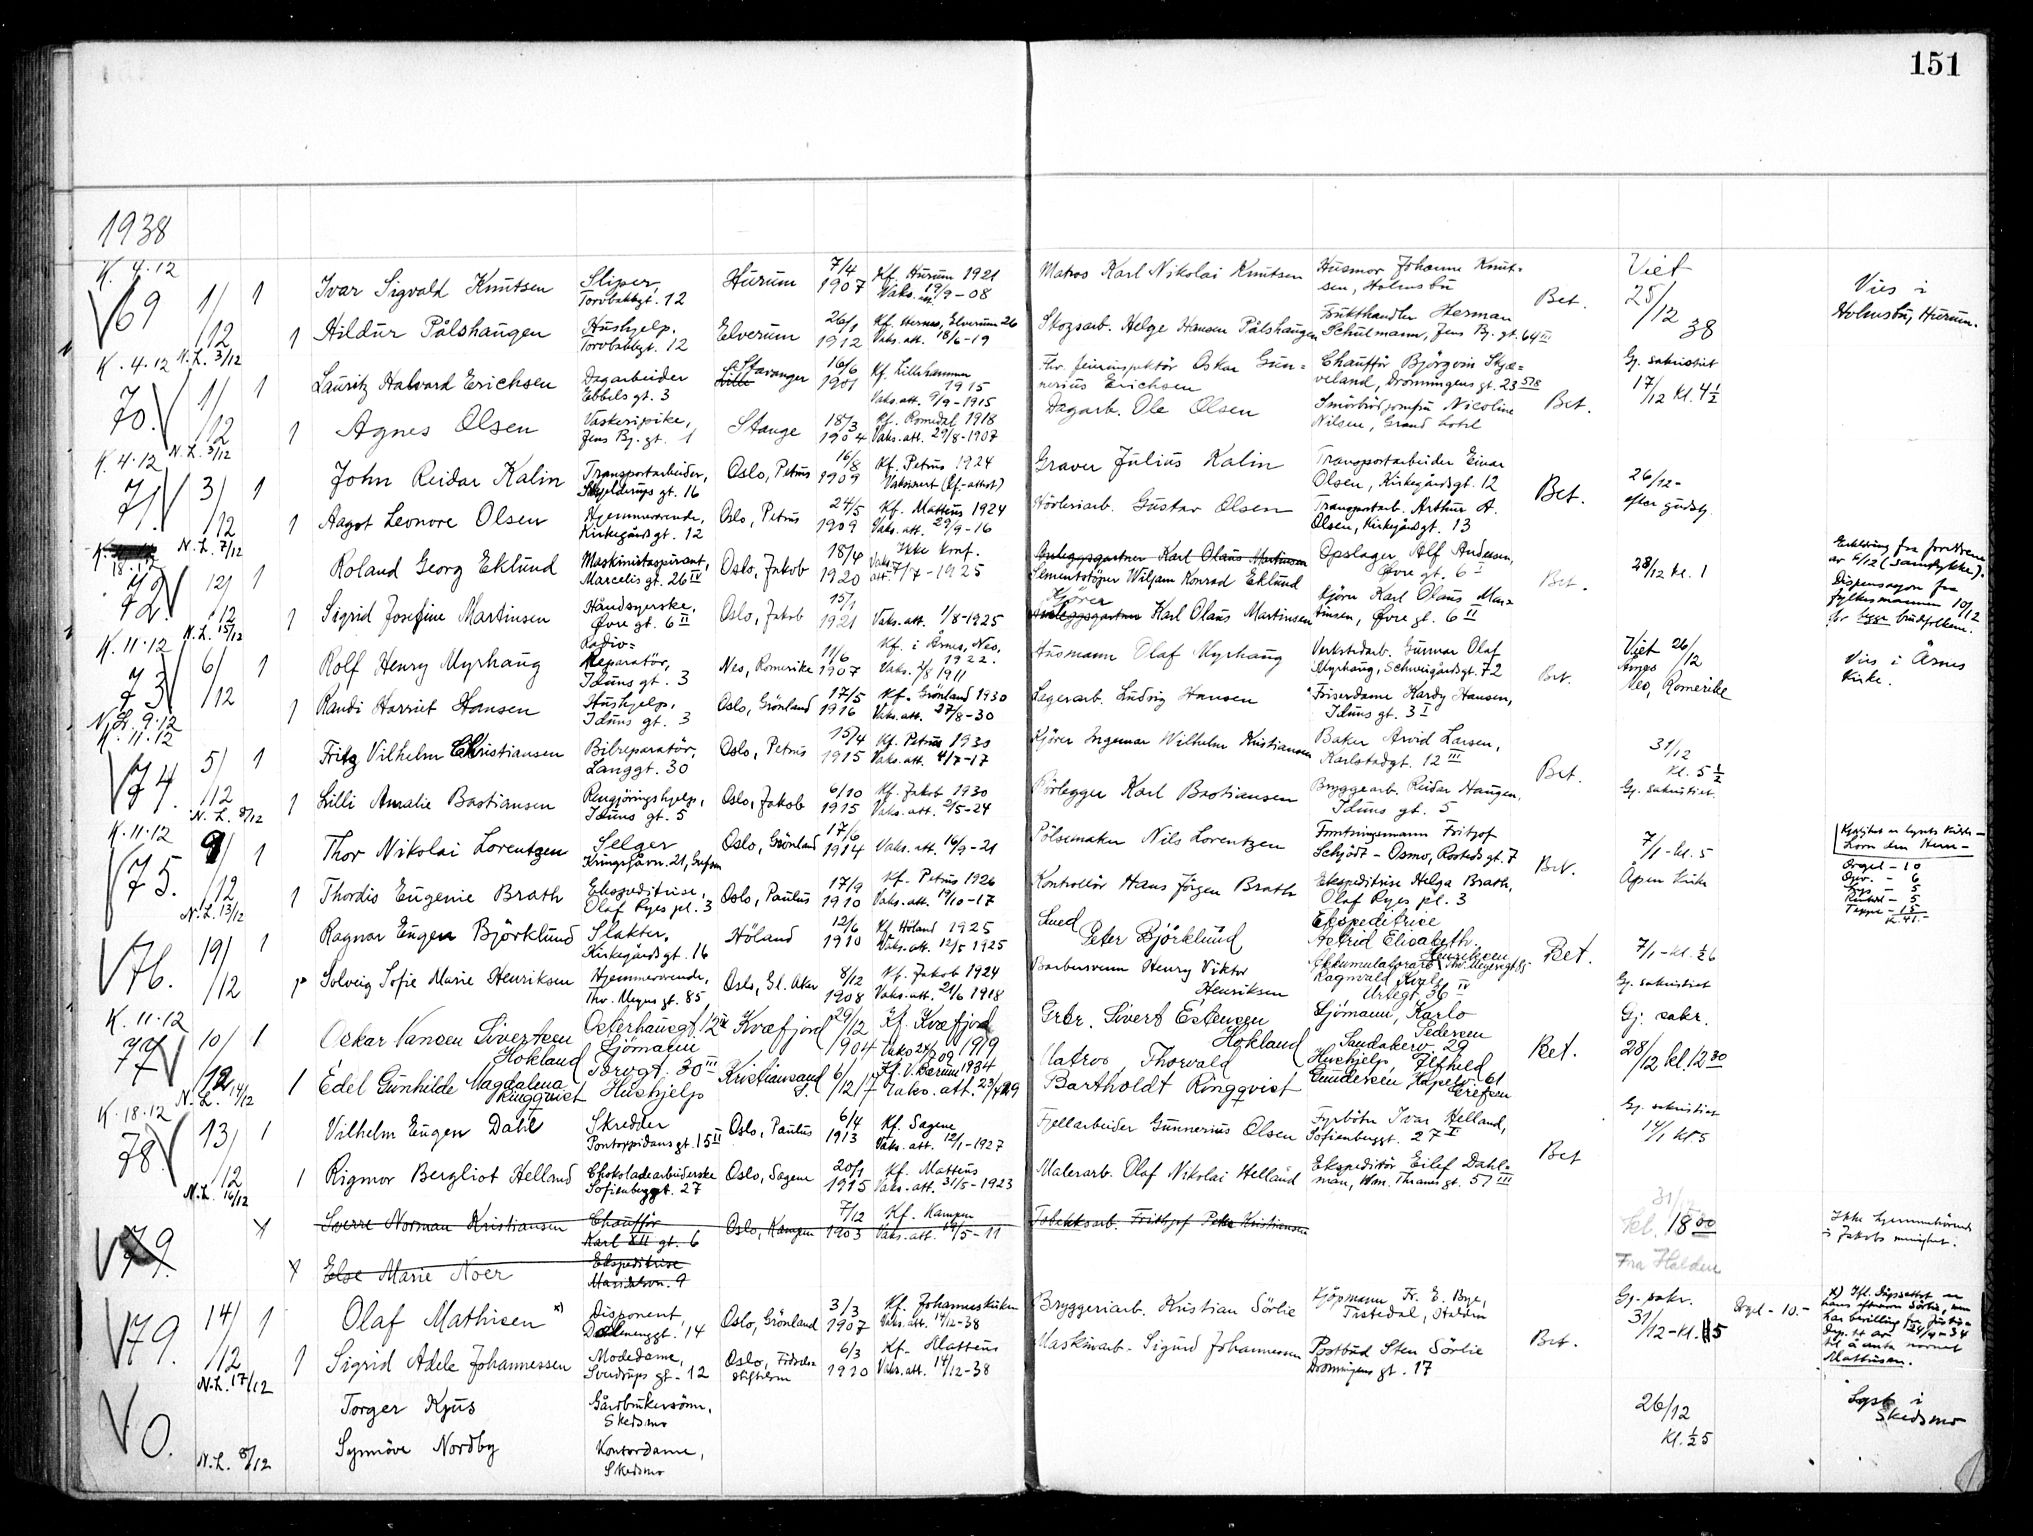 151
1938
K. 4.12
69 1/12 1 Ivar Sigvald Knutsen Sliper, Torvbakkgt. 12 Hurum 7/4 1907 Kf. Hurum 1921 Vaks. 19/9-08 Matros Karl Nikolai Knutsen Husmor Johanne Knutsen, Holmsbu Bet. Viet 25/12 38 Vies i Holmsbu, Hurum.
N.L. 3/12 1 Hildur Pålshaugen Hushjelp. Torvbakkgt. 12 Elverum 26/1 1912 Kf. Hernes, Elverum 26 Vaks. att. 18/6-19 Skogsarb. Helge Hansen Pålshaugen Frukthandler Herman Schulmann, Jens Bj. gt. 64 III
K. 4.12
70. 1/12 1 Lauritz Halvard Erichsen Dagarbeider Ebbels gt. 3 Stavanger 16/6 1901 Kf. Lillehammer 1915 Vaks. att. 9/9-1915 Oskar Gunnerius Erichsen Chauffør Bjørgvin Skjæveland, Dronningens gt. 23 Bet. Gj. sakristiet 17/12 Kl. 4 1/2
N.L. 3/12 1 Agnes Olsen Vaskeripike, Jens Bj. gt. 1 Stange 18/3 1904 Kf. Romedal 1918 Vaks. att. 29/8-1907 Dagarb. Ole Olsen Smørbrødjomfru Nicoline Nilsen, Grand hotel
K. 4.12
71. 3/12 1 John Reidar Kalin Transportarbeider, Skjelderups gt. 16 Oslo, Petrus 16/8 1909 Kf. Petrus 1924 Vaksinert (Kf.-attest) Graver Julius Kalin Transportarbeider Einar Olsen, Kirkegårdsgt. 12 Bet. 26/12- efter gudstj.
N.L. 7/12 1 Aagot Leonore Olsen Hjemmeværende, Kirkegårdsgt. 12 Oslo, Petrus 24/5 1909 Kf. Matteus 1924 Vaks. att. 29/9-16 Gustav Olsen Transportarb. Arthur A. Olsen, Kirkegårdsgt. 13
K. 18.12
72. 12/12 1 Roland Georg Eklund Maskinistaspirant, Marcelis gt. 26 IV Oslo, Jakob 18/4 1920 Ikke konf. Vaks. att. 7/7-1925 Anleggsgartner Karl Olaus Martinsen Sementstøper Wiljam Konrad Eklund Opslager Alf Andersen, Øvre gt. 6 I Bet. 28/12 kl. 1 Erklæring fra foreldrene av 6/12 (samtykke). Dispensasjon fra fylkesmannen 10/12 for begge brudefolkene.
N.L. 15/12 1 Sigrid Josefine Martinsen Håndsyerske, Øvre gt. 6 II Oslo, Jakob 15/1 1921 Vaks. att. 1/8-1925 Kjører Anleggsgartner Karl Olaus Martinsen Kjører Karl Olaus Martinsen, Øvre gt. 6 II
K. 11.12
73 6/12 1 Rolf Henry Myrhaug Radio-Reparatør, Iduns gt. 3 Nes, Romerike 11/6 1907 Kf. i Årnes, Nes, 1922. Vaks. 2/8 1911 Husmann Olaf Myrhaug Verkstedarb. Gunnar Olaf Myrhaug, Schweigårdsgt. 72 Bet. Viet 26/12 Årnes Nes, Romerike Vies i Årnes kirke.
N.L. 9.12 1 Randi Harriet Hansen Hushjelp, Iduns gt. 3 Oslo, Grönland 17/5 1916 Kf. Grönland 1930 Vaks. att. 27/8-30 Lagerarb. Ludvig Hansen Friserdame Hardy Hansen, Iduns gt. 3 I
K. 11.12
74. 5/12 1 Fritz Vilhelm Christiansen Bilreparatør, Langgt. 30 Oslo, Petrus 15/4 1915 Kf. Petrus 1930 Vaks. att. 4/7-17 Kjører Ingemar Wilhelm Kristiansen Baker Arvid Larsen, Karlstadgt. 12 III Bet. 31/12 Kl. 5 1/2 Gj. sakristiet.
N.L. 8/12 1 Lilli Amalie Bastiansen Rengjöringshjelp, Iduns gt. 5 Oslo, Jakob 6/10 1915 Kf. Jakob 1930 Vaks. att. 2/5-24 Rörlegger Karl Bastiansen Bryggearb. Reidar Haugen, Iduns gt. 5
K. 11.12
75. 9/12 1 Thor Nikolai Lorentzen Selger Kringsjåvn. 21, Grefsen Oslo, Grönland 17/6 1914 Vaks. att. 16/9-21 Pølsemaker Nils Lorentzen Forretningsmann Fritjof Schjödt-Osmo, Rosteds gt. 7 Bet. 7/1-kl. 5 Åpen kirke Orgel - 10 Opv. - 6 Lys - 5 - 5 Teppe - 15 Kr. 41.-
N.L. 13/12 1 Thordis Eugenie Brath Ekspeditrise, Olaf Ryes pl. 3 Oslo, Paulus 17/9 1910 Kf. Petrus 1926 Vaks. att. 19/10-17 Kontrollör Hans Jörgen Brath Ekspeditrise Helga Brath, Olaf Ryes pl. 3
76. 19/12 1 Ragnar Eugen Björklund Slakter, Kirkegårdsgt. 16 Höland 12/6 1910 Kf. Höland 1925 Vaks. att. 12/5 1925 Smed Peter Björklund Ekspeditrise Astrid Elisabeth Henriksen Thv. Meyersgt. 85 Bet. 7/1-Kl. 1/2 6 Gj. sakristiet
1 Solveig Sofie Marie Henriksen Hjemmeværende, Thv. Meyers gt. 85 Oslo, Gl. Aker 8/12 1908 Kf. Jakob 1924 Vaks. att. 21/6 1918 Barbersvenn Henry Viktor Henriksen Akkumulatorarb. Ragnvald Urtegt. 36 IV
K. 11.12
77 10/12 1 Oskar Nansen Sivertsen Hokland Osterhausgt. 12 IV Sjömann Kvæfjord 29/12 1904 Kf. Kvæfjord 1919 Vaks. 24/7 09 Grbr. Sivert Estensen Hokland Sjömann, Karlo Pedersen Sandakerv. 29 Bet. Gj. sakr. 28/12 kl. 12.30
N.L. 14/12 1 Edel Gunhilde Magdalena Ringqvist Torvgt. 30 III Hushjelp Kristiansand S. 6/12 17 Kf. V. Bærum 1934 Vaks. att. 23/4 29 Matros Thorvald Bartholdt Ringqvist Hushjelp Alfhild Gundersen Kapelv. 61 Grefsen
K. 18.12
78. 13/12 1 Vilhelm Eugen Dahl Skredder Pontoppidans gt. 15 II Oslo, Paulus 6/4 1913 Kf. Sagene Vaks. att. 12/1-1927 Fjellarbeider Gunnerius Olsen Fyrböter Ivar Helland, Sofienberggt. 27 I Bet Gj. sakristiet 14/1 kl. 5
N.L. 16/12 1 Rigmor Bergliot Helland Chokoladearbeiderske Sofienberggt. 27 Oslo, Sagene 20/1 1915 Kf. Matteus Vaks. att. 31/5-1923 Malerarb. Olaf Nikolai Helland Ekspeditör Eilef Dahlman, Wm. Thranes gt. 57 III
79. x Sverre Norman Kristiansen Chauffør Karl XII gt. 6 Oslo, Kampen 7/12 1903 Kf. Kampen Vaks. att. 19/5-11 Tobakksarb. Frithjof Peter Kristiansen 31/ kl. 18.00 Ikke hjemmehörende i Jakobs menighet.
x Else Marie Noer Ekspeditrise Maridalsvn. 9 Fra Halden
79. 14/12 1 Olaf Mathisen x) Disponent, Dælenenggt. 14 Oslo, Grönland 3/3 1907 Kf. Johanneskirken Vaks. att. 14/12-38 Bryggeriarb. Kristian Sörlie Kjöpmann Fr. E. Bye, Tistedal, Halden Bet. Gj. sakr. 31/12-kl. 5 Orgel - 10.- x) hans efternavn Sörlie, men har bevilling fra Justis-Dep.tet av 24/9-34 til å anta navnet Mathisen.
N.L. 17/12 1 Sigrid Adele Johannessen Modedame, Sverdrups gt. 12 Oslo, 6/3 1920 Kf. Matteus Vaks. att. 14/12-38 Maskinarb. Sigurd Johannessen Postbud Sten Sörlie Dronningens gt. 17
0. Torger Kjus Gårdbrukersönn, Skedsmo 26/12 Kl. 1/2 5 Lyst i Skedsmo
N.L. 8/12 Synnöve Nordby Kontordame, Skedsmo